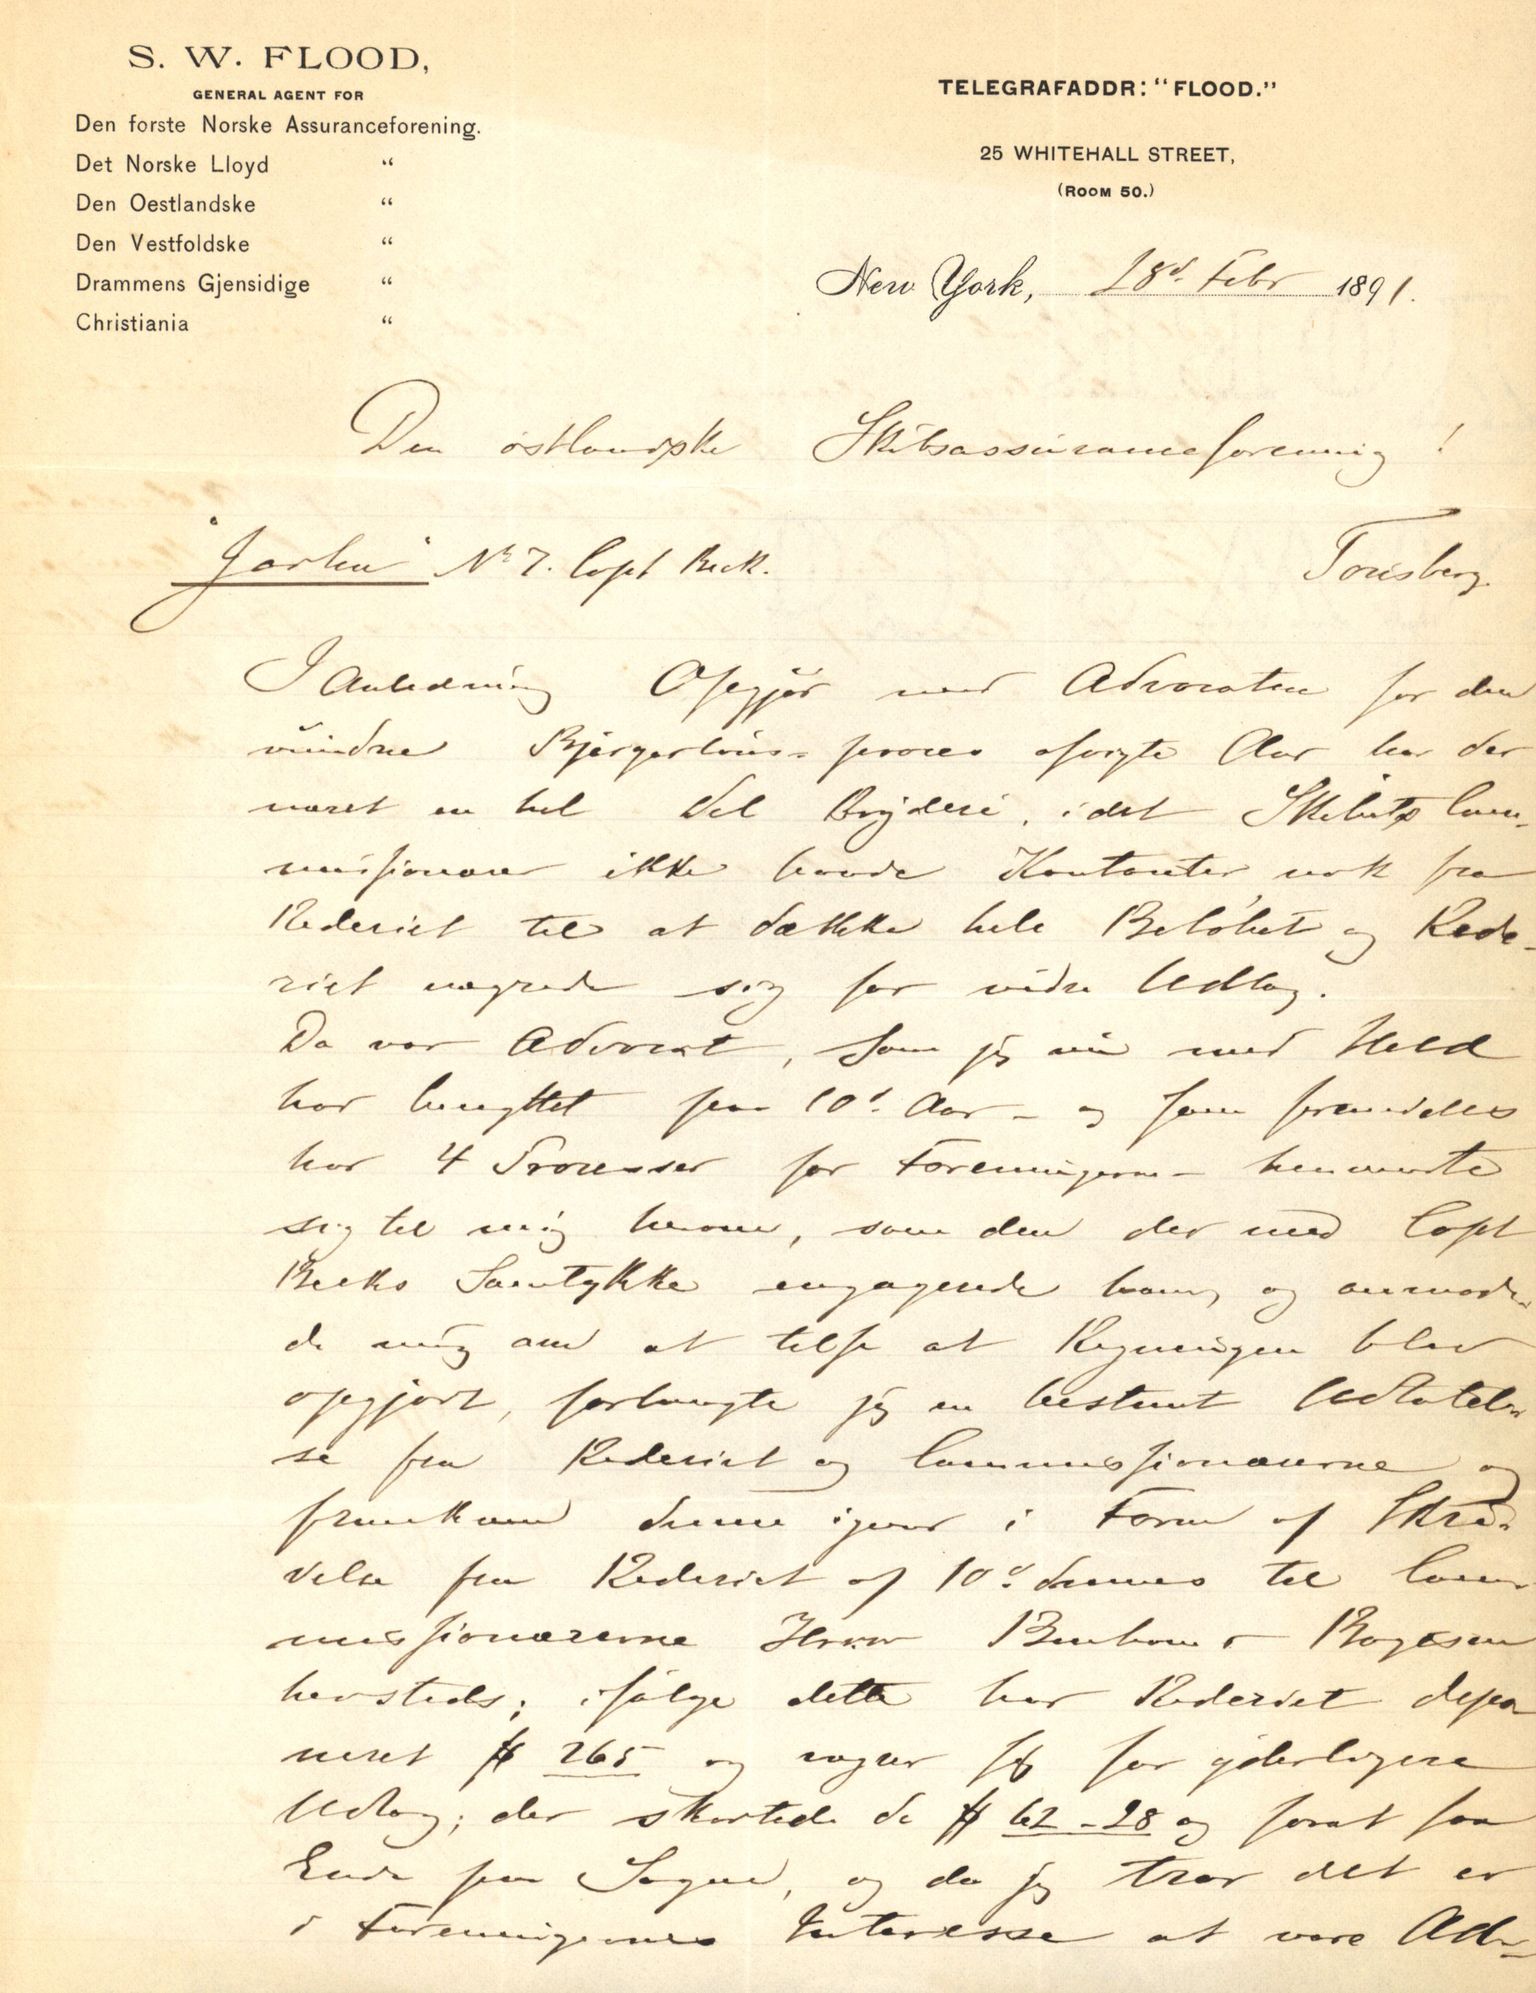 S. W. FLOOD,
GENERAL AGENT FOR
Den forste Norske Assuranceforening.
Det Norske Lloyd "
Den Oestlandske "
Den Vestfoldske "
Drammens Gjensidige "
Christiania "
TELEGRAFADDR: "FLOOD."
25 WHITEHALL STREET,
(ROOM 50.)
New York, 28d. Febr 1891.
Den østlandske Skibsassuranceforening!
"Jarlen" No 7. Capt Beck.
Tønsberg.
I Anledning Opgjør med Advocaten for den
vundne Bjergerløns-proces afvigte Aar har der
været en hel Del Bryderi, idet Skibets Com-
missionærer ikke havde Kontanter nok fra
Rederiet til at dække hele Beløbet og Rede-
riet nægtede sig for vidre Udlæg.
Da vor Advocat, som jeg nu med Held
har benyttet paa 10d. Aar - og som fremdeles
har 4 Processer for Foreningerne - henvendte
sig til mig herom, som den der med Capt
Becks Samtykke engagerede ham, og anmode-
de mig om at tilse at Regningen blev
opgjort, forlangte jeg en bestemt Udtalel-
se fra Rederiet og Commissionærerne og
fremkom denne igaar i Form af Skri-
velse fra Rederiet af 10d. dennes til Com-
missionærerne Herrer Benham & Boyesen
hersteds; ifølge dette har Rederiet depo
neret $ 265 og vægrer sig for yderligere
Udlæg; der skortede da $ 62-28 og forat faa
Ende paa Sagen, og da jeg tror det er
i Foreningernes Interesse at vore Ad-